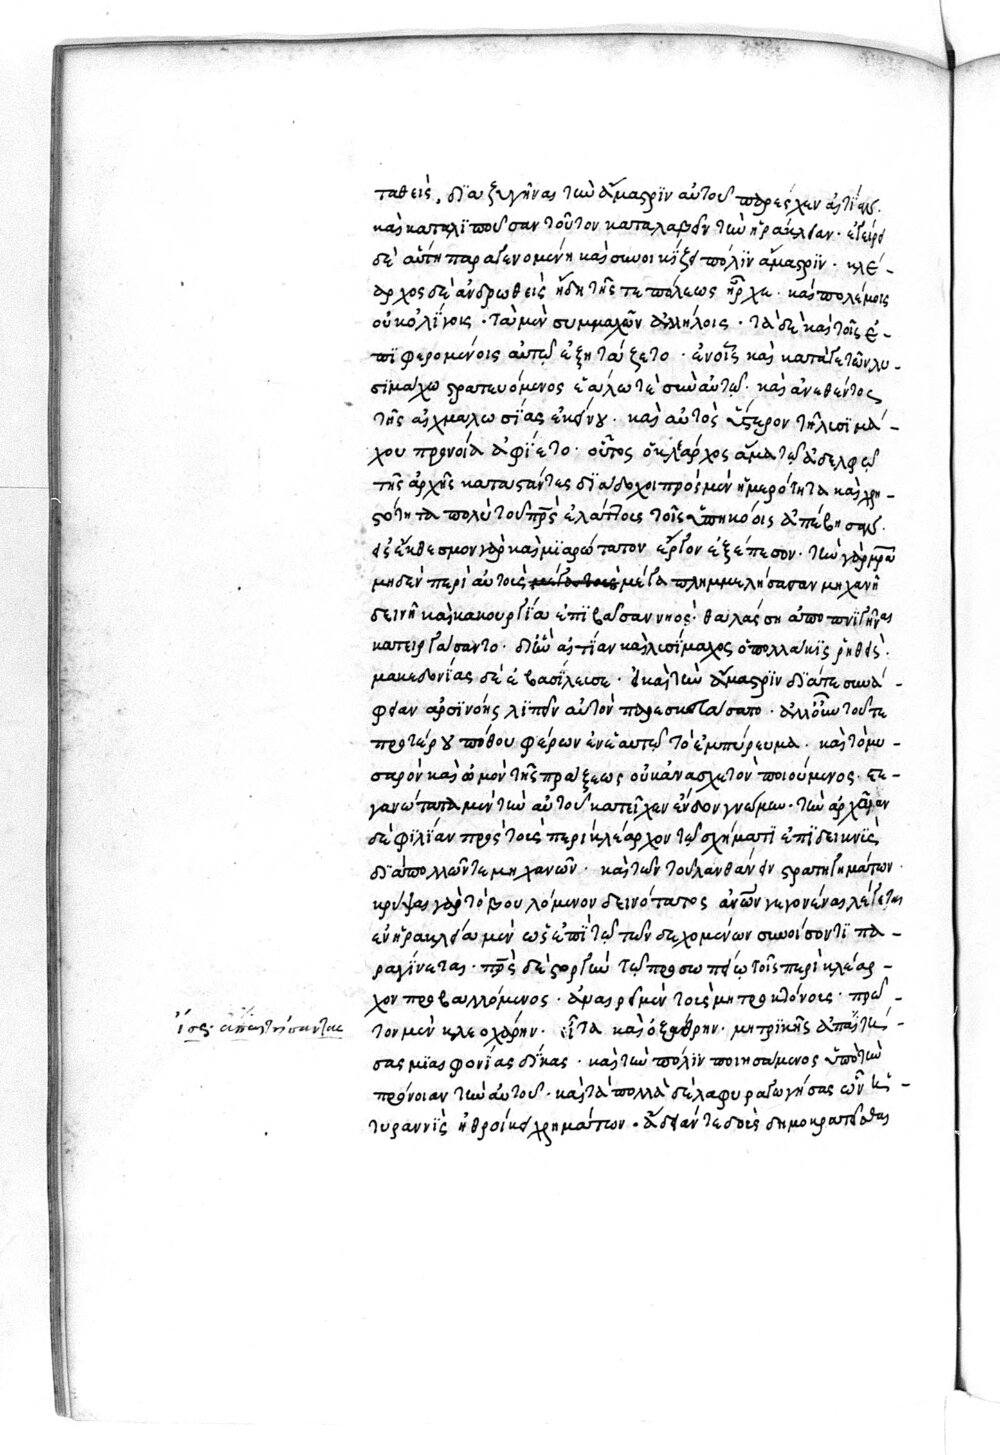 ταθεὶς, διαζυγῆναι τὴν ἄμαστριν αὐτοῦ παρέσχεν αἰτίαν.
καὶ καταλιποῦσαν τοῦτον καταλαβεῖν τὴν ἡράκλειαν· ἐγείρει
δὲ αὕτη παραγενομένη καὶ συνοικίζει πόλιν ἄμαστριν· κλέ-
αρχος δὲ ἀνδρωθεὶς ἤδη τῆς τε πόλεως ἦρχε· καὶ πολέμοις
οὐκ ὀλίγοις· τὰ μὲν συμμαχῶν ἀλλήλοις· τὰ δὲ καὶ τοῖς ἐ-
πιφερομένοις αὐτῷ ἐξητάζετο· ἐν οἷς καὶ κατὰ γετῶν λυ-
σιμάχῳ στρατευόμενος ἑάλω τε σὺν αὐτῷ· καὶ ἀνεθέντος
τῆς αἰχμαλωσίας ἐκείνου· καὶ αὐτὸς ὕστερον τῇ λισιμά-
χου προνοίᾳ ἀφίετο· οὗτος ὁ κλέαρχος ἅμα τῷ ἀδελφῷ
τῆς ἀρχῆς καταστάντες διάδοχοι πρὸς μὲν ἡμερότητα καὶ χρη-
στότητα πολὺ τοῦ πρς ἐλάττους τοῖς ὑπηκόοις ἀπέβησαν·
εἰς ἔκθεσμον γὰρ καὶ μιαρώτατον ἔργον ἐξέπεσον· τὴν γὰρ μρα
μηδὲν περὶ αὐτοὺς μέγα πλημμελήσασαν μηχανῇ
δεινῇ καὶ κακουργίᾳ ἐπιβᾶσαν νηὸς· θαλάσσῃ ἀποπνιγῆναι
κατειργάσαντο· δι' ἣν αἰτίαν καὶ λισίμαχος ὁ πολλάκις ῥηθείς·
μακεδονίας δὲ ἐβασίλευσε· εἰ καὶ τὴν ἄμαστριν διὰ τὴν συνά-
φειαν ἀρσινόης λιπεῖν αὐτὸν παρεσκευάσατο· ἀλλ' οὖν τοῦ τε
προτέρου πόθου φέρων ἐν ἑαυτῷ τὸ ἐμπύρευμα· καὶ τὸ μυ-
σαρὸν καὶ ὠμὸν τῆς πράξεως οὐκ ἀνασχετὸν ποιούμενος· στε-
γανώτατα μὲν τὴν αὐτοῦ κατεῖχεν ἔνδον γνώμην· τὴν ἀρχαίαν
δὲ φιλίαν πρὸς τοὺς περὶ κλέαρχον τῷ σχήματι ἐπιδεικνὺς
διὰ πολλῶν τε μηχανῶν· καὶ τῶν τοῦ λανθάνειν στρατηγημάτων·
κρύψαι γὰρ τὸ βουλόμενον δεινότατος ἀνων γεγονέναι λέγεται
ἐν ἡρακλείᾳ μὲν ὡς ἐπὶ τῷ τῶν δεχομένων συνοίσοντι πα-
ραγίνεται· πρς δὲ στοργὴν τῷ προσωπείῳ τοῖς περὶ κλέαρ-
χον προβαλλόμενος· ἀναιρεῖ μὲν τοὺς μητροκτόνους· πρῶ-
τον μὲν κλεοχάρην· εἶτα καὶ ὀξάθρην· μητρικῆς ἀπαιτή-
σας μιαιφονίας δίκας· καὶ τὴν πόλιν ποιησάμενος ὑπὸ τὴν
πρόνοιαν τὴν αὑτοῦ· καὶ τὰ πολλὰ δὲ λαφυραγωγήσας ὧν ἡ
τυραννὶς ἠθροίκει χρημάτων· ἄδειάν τε δοὺς δημοκρατεῖσθαι
ἴσως· ἀπαιτήσαντας